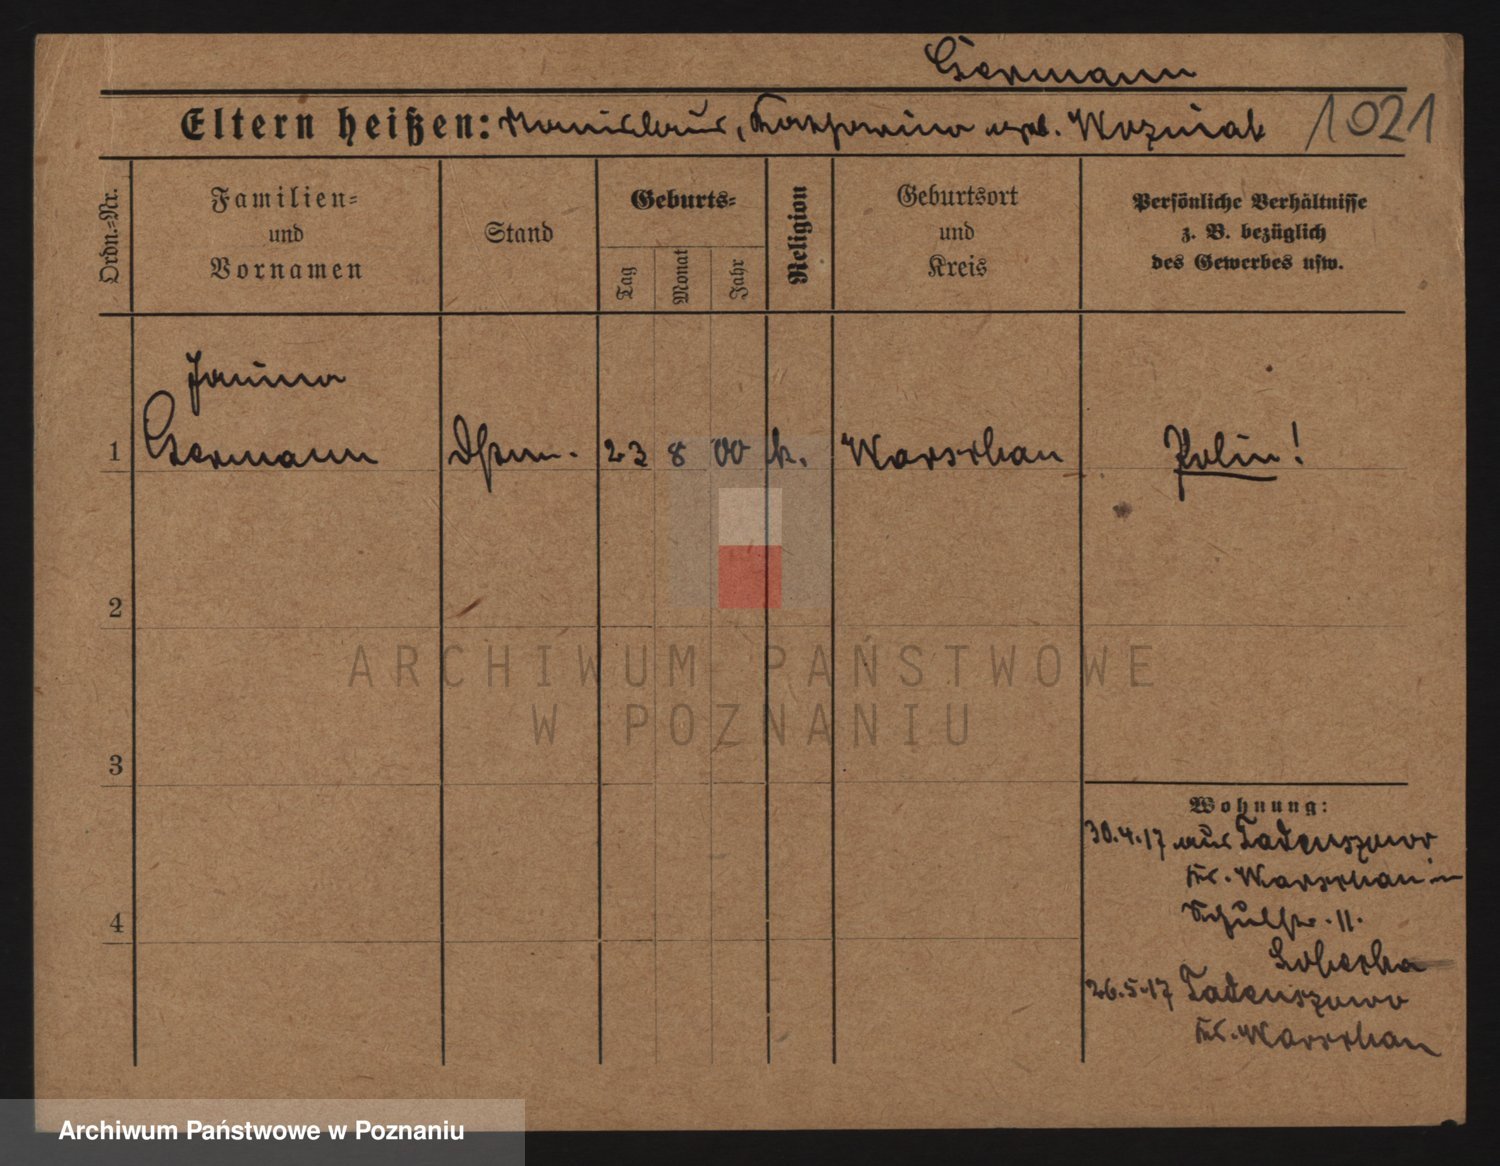 Germann
Eltern heißen: Stanislaus, Katharina geb. Wozniak 1021
Ordn.-Nr.
Familien-
und
Vornamen
Stand
Geburts-
Tag
Monat
Jahr
Religion
Geburtsort
und
Kreis
Persönliche Verhältnisse
z. B. bezüglich
des Gewerbes usw.
Janina
1 Germann 23 8 00 k. Warschau Polin!
2
3
4
Wohnung:
30.4.17 aus
Kr. Warschau in
Schulstr. 11.
26.5.17
Kr. Warschau
ARCHIWUM PAŃSTWOWE
W POZNANIU
Archiwum Państwowe w Poznaniu